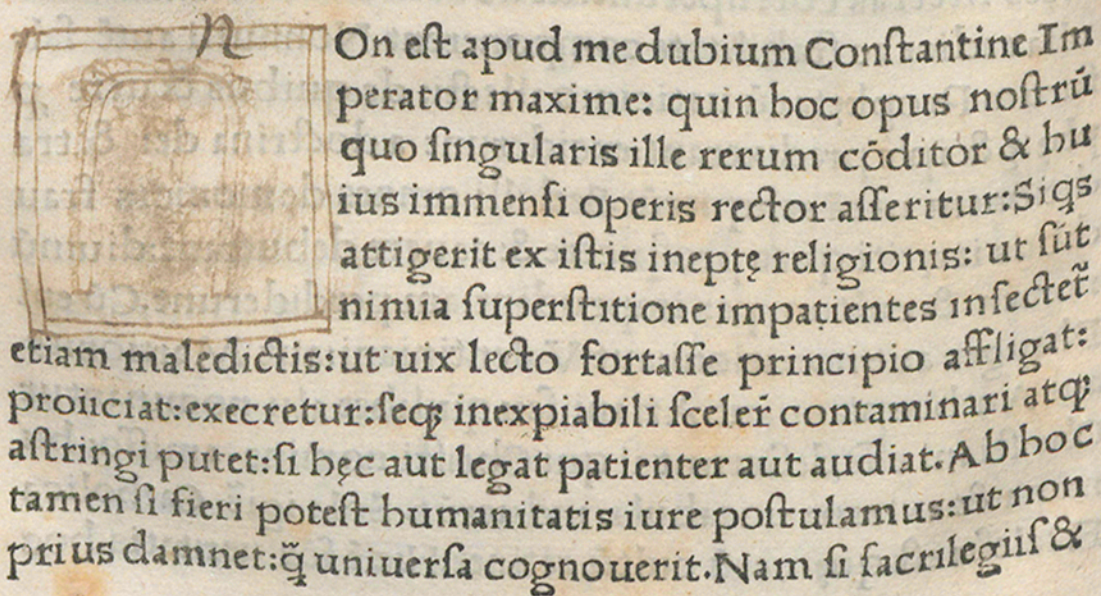 n
On eſt apud me dubium Conſtantine Im
perator maxime: quin hoc opus noſtrū
quo ſingularis ille rerum cōditor & hu
ius immenſi operis rector aſſeritur:Siqs
attigerit ex iſtis ineptę religionis: ut ſūt
nimia ſuperſtitione impatientes inſectet᷑
etiam maledictis:ut uix lecto fortaſſe principio affligat:
proiiciat:execretur:ſeqꝫ inexpiabili ſceler᷑ contaminari atqꝫ
aſtringi putet:ſi hęc aut legat patienter aut audiat.Ab hoc
tamen ſi fieri poteſt humanitatis iure poſtulamus:ut non
prius damnet:q̃ uniuerſa cognouerit.Nam ſi ſacrilegiiſ &